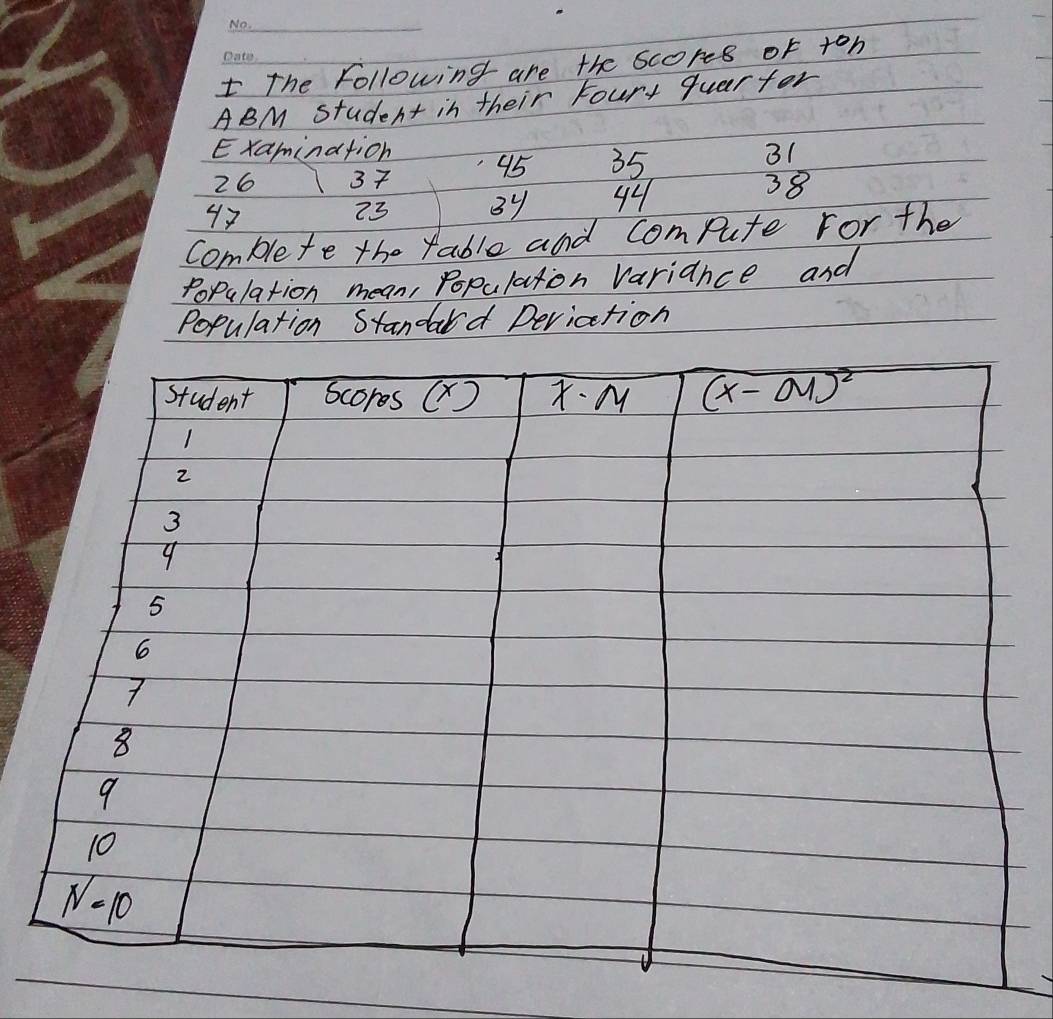 No.
Date
I The Following are the Scores of ten
ABM Student in their Fourt quarter
Examination
26 37 45 35 31
47 23 34 44 38
Complete the table and compute For the
Population mean, Populaton Variance and
Population Standard Deviation
Student Scores (X) X-M (X-M)²
1
2
3
4
5
6
7
8
9
10
N=10